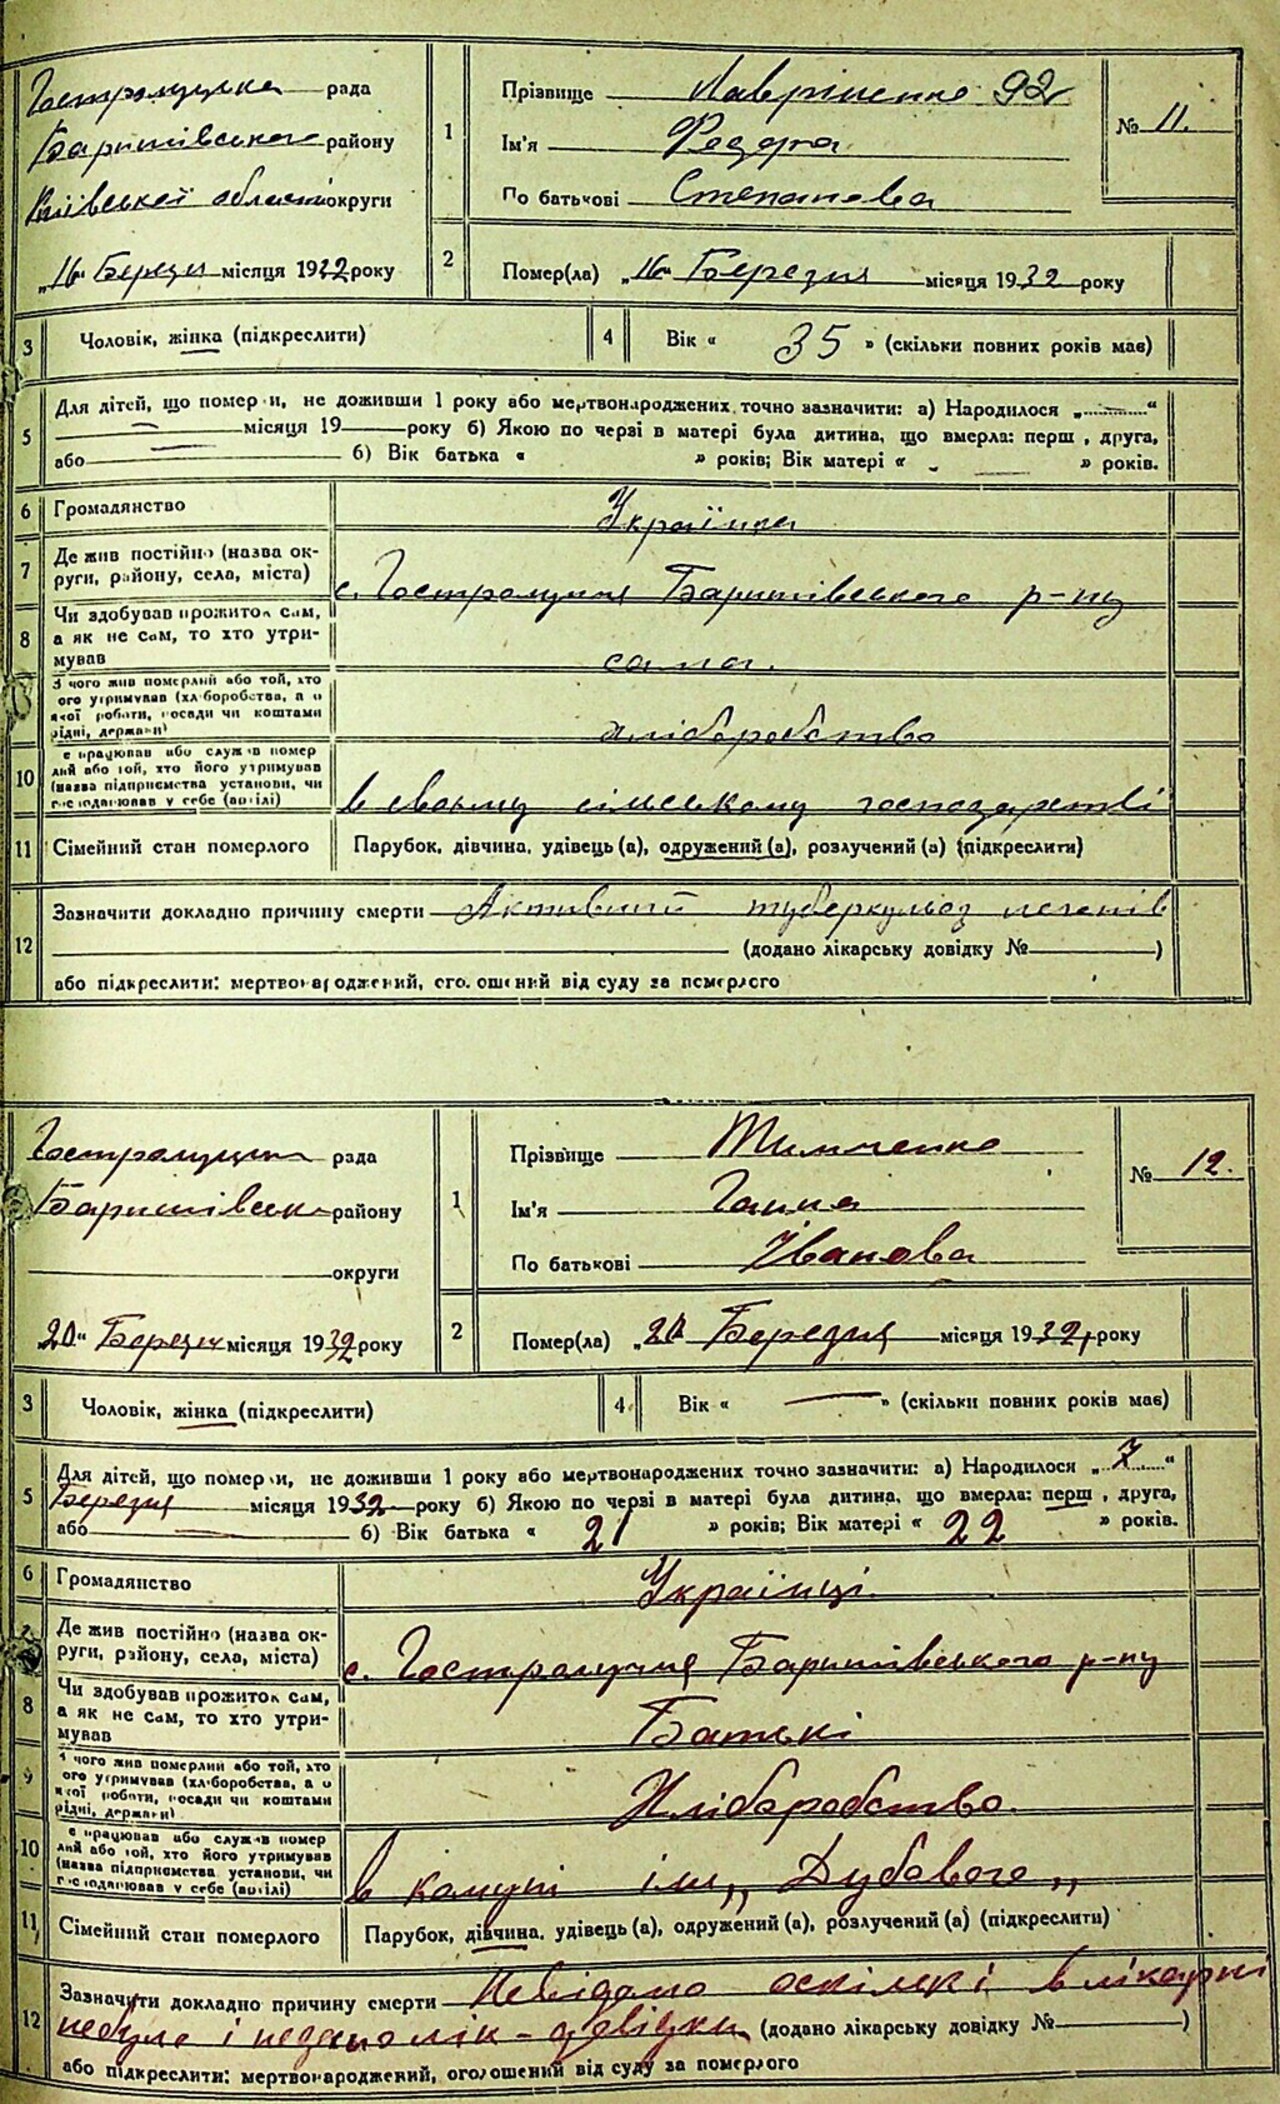 Гостролуцька рада
Баришівського району
Київської області округи
„16“ Березня місяця 1932 року
1
Прізвище Лавріненко 92
Ім'я Федора
По батькові Степанова
№ 11.
2
Помер(ла) „16“ Березня місяця 1932 року
3 Чоловік, жінка (підкреслити)
4 Вік « 35 » (скільки повних років має)
5 Для дітей, що померли, не доживши 1 року або мертвонароджених точно зазначити: а) Народилося „ — “
— місяця 19 — року б) Якою по черзі в матері була дитина, що вмерла: перш , друга,
або — б) Вік батька « » років; Вік матері « — » років.
6 Громадянство Українка
7 Де жив постійно (назва ок-
руги, району, села, міста) с. Гостролуччя Баришівського р-ну
8 Чи здобував прожиток сам,
а як не сам, то хто утри-
мував сама.
З чого жив померлий або той, хто
ого утримував (хліборобства, а о
якої роботи, посади чи коштами
рідні, держави) хліборобство
10 е працював або служив помер
лий або той, хто його утримував
(назва підприємства установи, чи
господарював у себе (вдома) в своьму сільському господарстві
11 Сімейний стан померлого Парубок, дівчина, удівець (а), одружений (а), розлучений (а) (підкреслити)
12 Зазначити докладно причину смерти Активний туберкульоз легенів
(додано лікарську довідку № )
або підкреслити: мертвонароджений, оголошений від суду за померлого
Гостролуцька рада
Баришівськ району
округи
„20“ Березня місяця 1932 року
1
Прізвище Тимченко
Ім'я Ганна
По батькові Іванова
№ 12.
2
Помер(ла) „20 Березня місяця 1932 року
3 Чоловік, жінка (підкреслити)
4 Вік « — » (скільки повних років має)
5 Для дітей, що померли, не доживши 1 року або мертвонароджених точно зазначити: а) Народилося „ 7 “
Березня місяця 1932 року б) Якою по черзі в матері була дитина, що вмерла: перш , друга,
або — б) Вік батька « 21 » років; Вік матері « 22 » років.
6 Громадянство Українці
Де жив постійно (назва ок-
руги, району, села, міста) с. Гостролуччя Баришівського р-ну
8 Чи здобував прожиток сам,
а як не сам, то хто утри-
мував Батькі
9 чого жив померлий або той, хто
ого утримував (хліборобства, а о
якої роботи, посади чи коштами
рідні, держави) Хліборобство.
10 е працював або служив помер
лий або той, хто його утримував
(назва підприємства установи, чи
господарював у себе (вдома) в комуні ім „Дубового„
11 Сімейний стан померлого Парубок, дівчина, удівець (а), одружений (а), розлучений (а) (підкреслити)
12 Зазначити докладно причину смерти Невідомо оскількі в лікарні
небуло і недано лік-довідки (додано лікарську довідку № )
або підкреслити: мертвонароджений, оголошений від суду за померлого